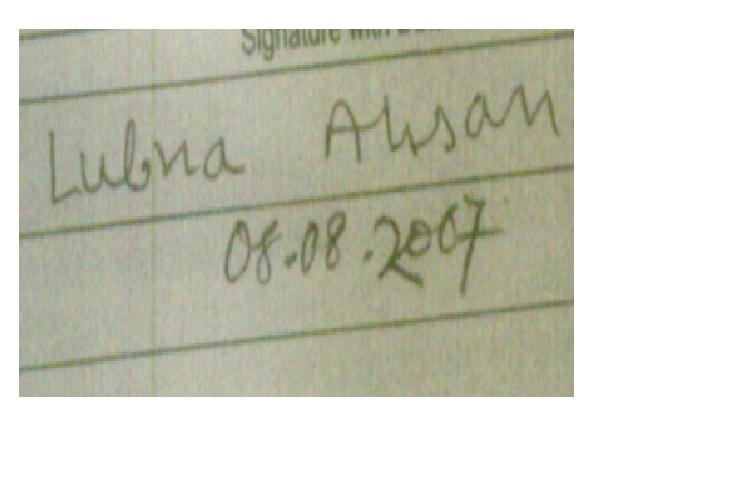 Signature with
Lubna Ahsan
08.08.2007